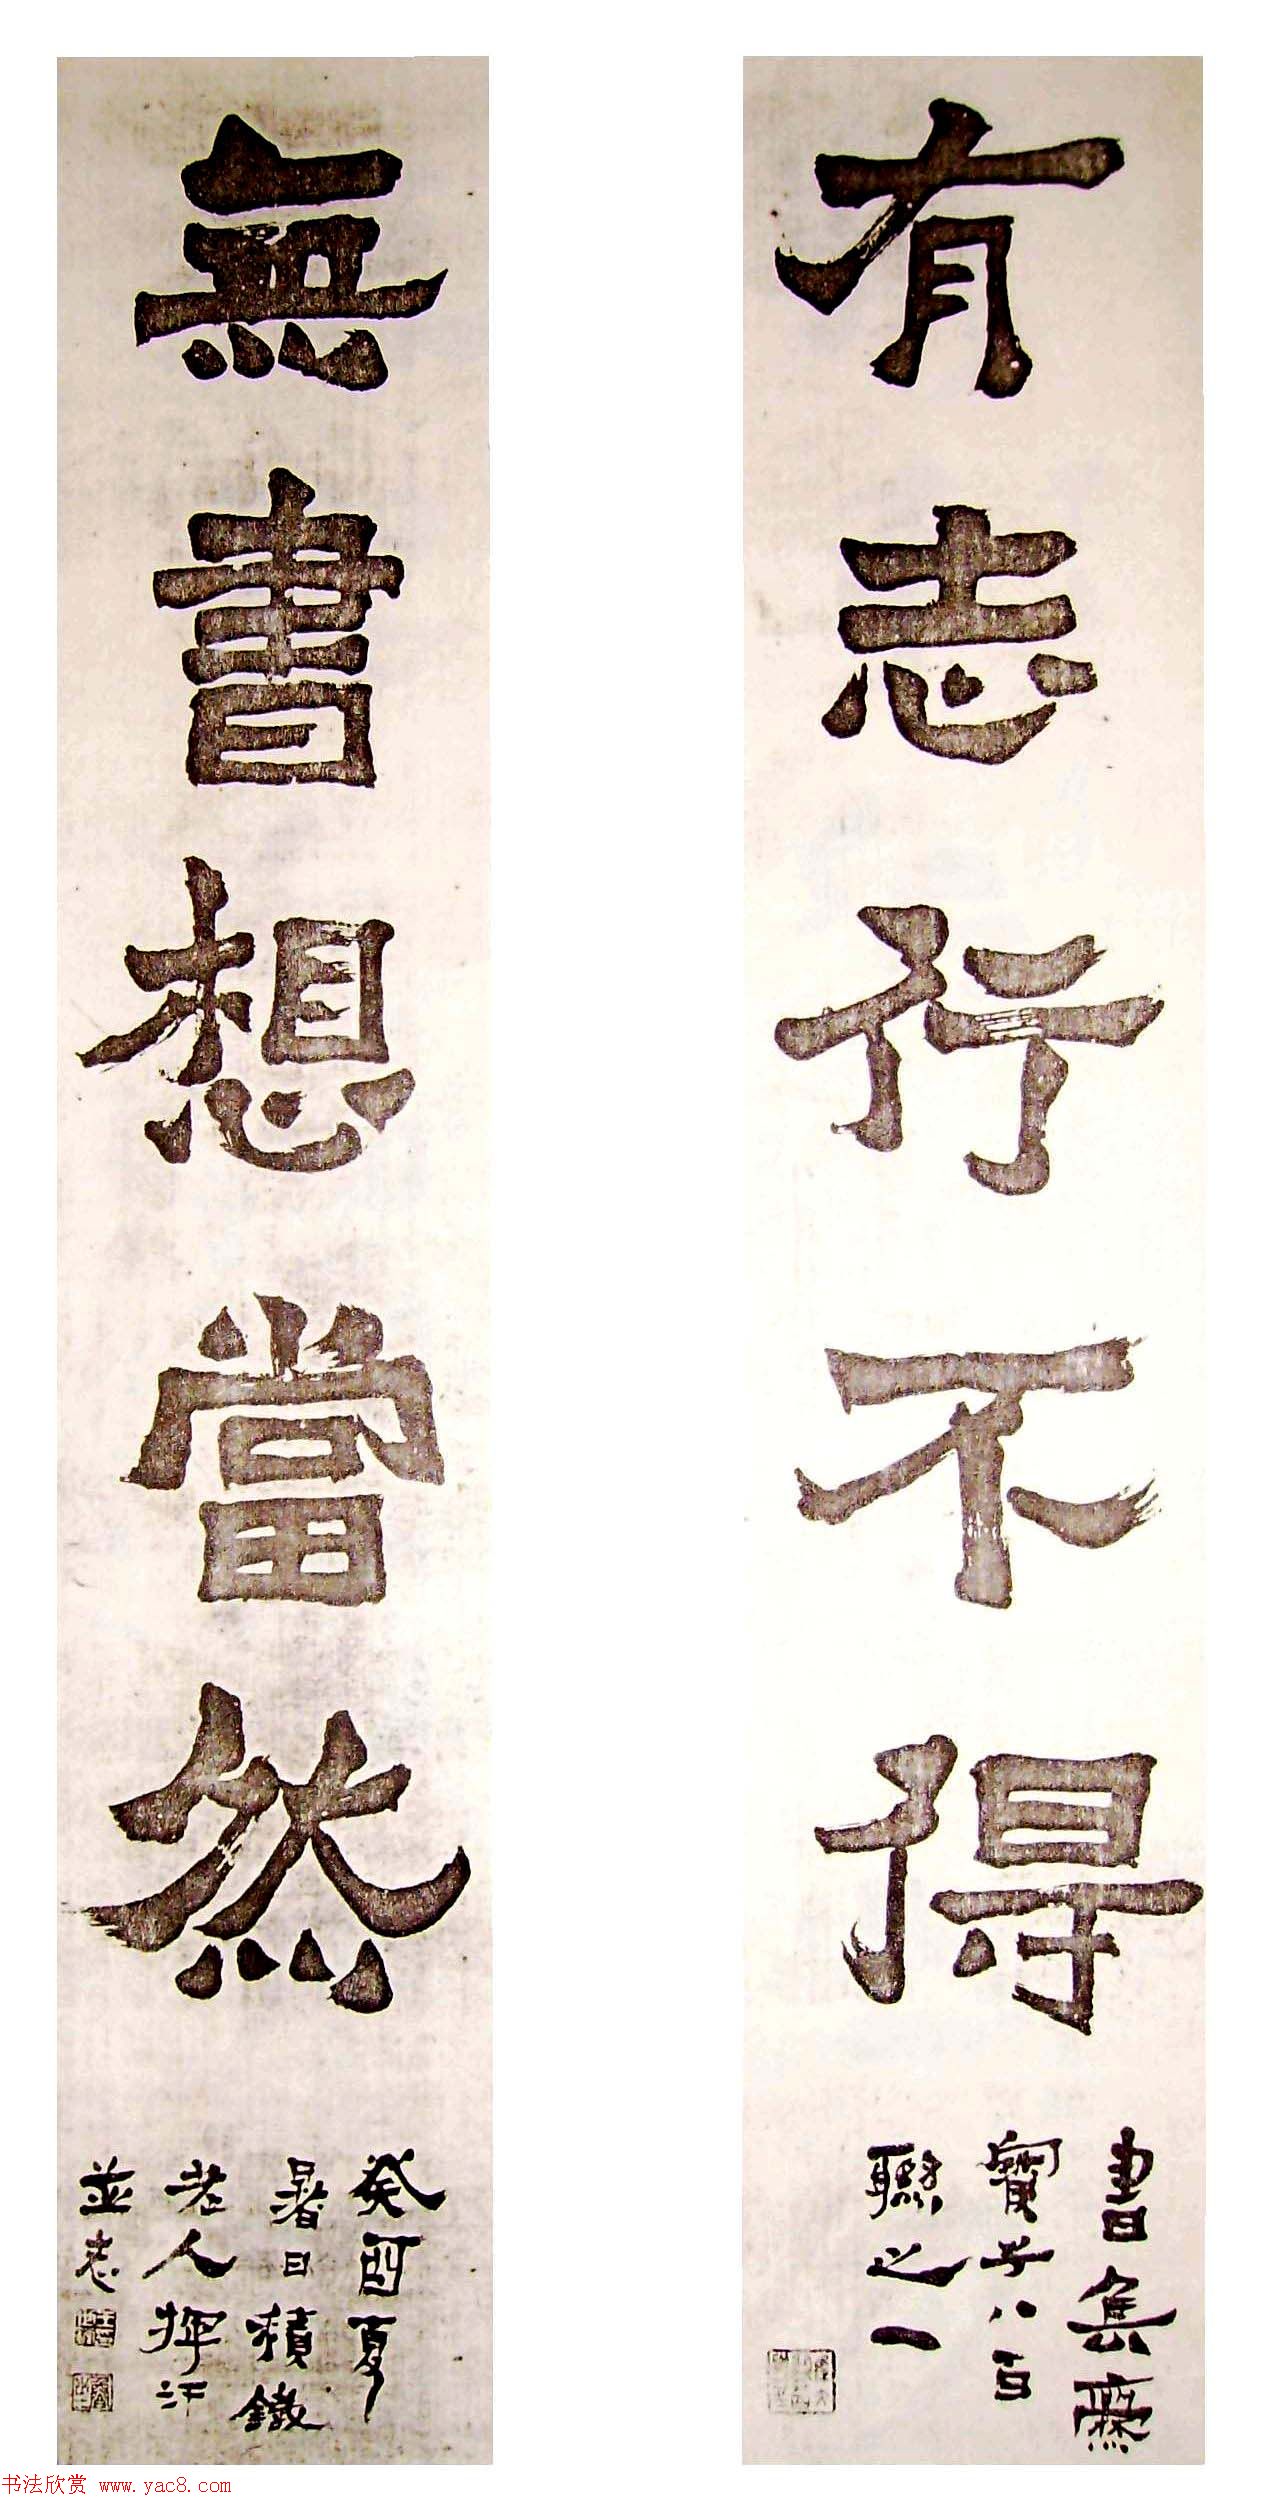 有志行不得
書焦廱
寶子八百
聯之一
無書想當然
癸酉夏
暑日積鐵
老人揮汗
並志
书法欣赏 www.yac8.com